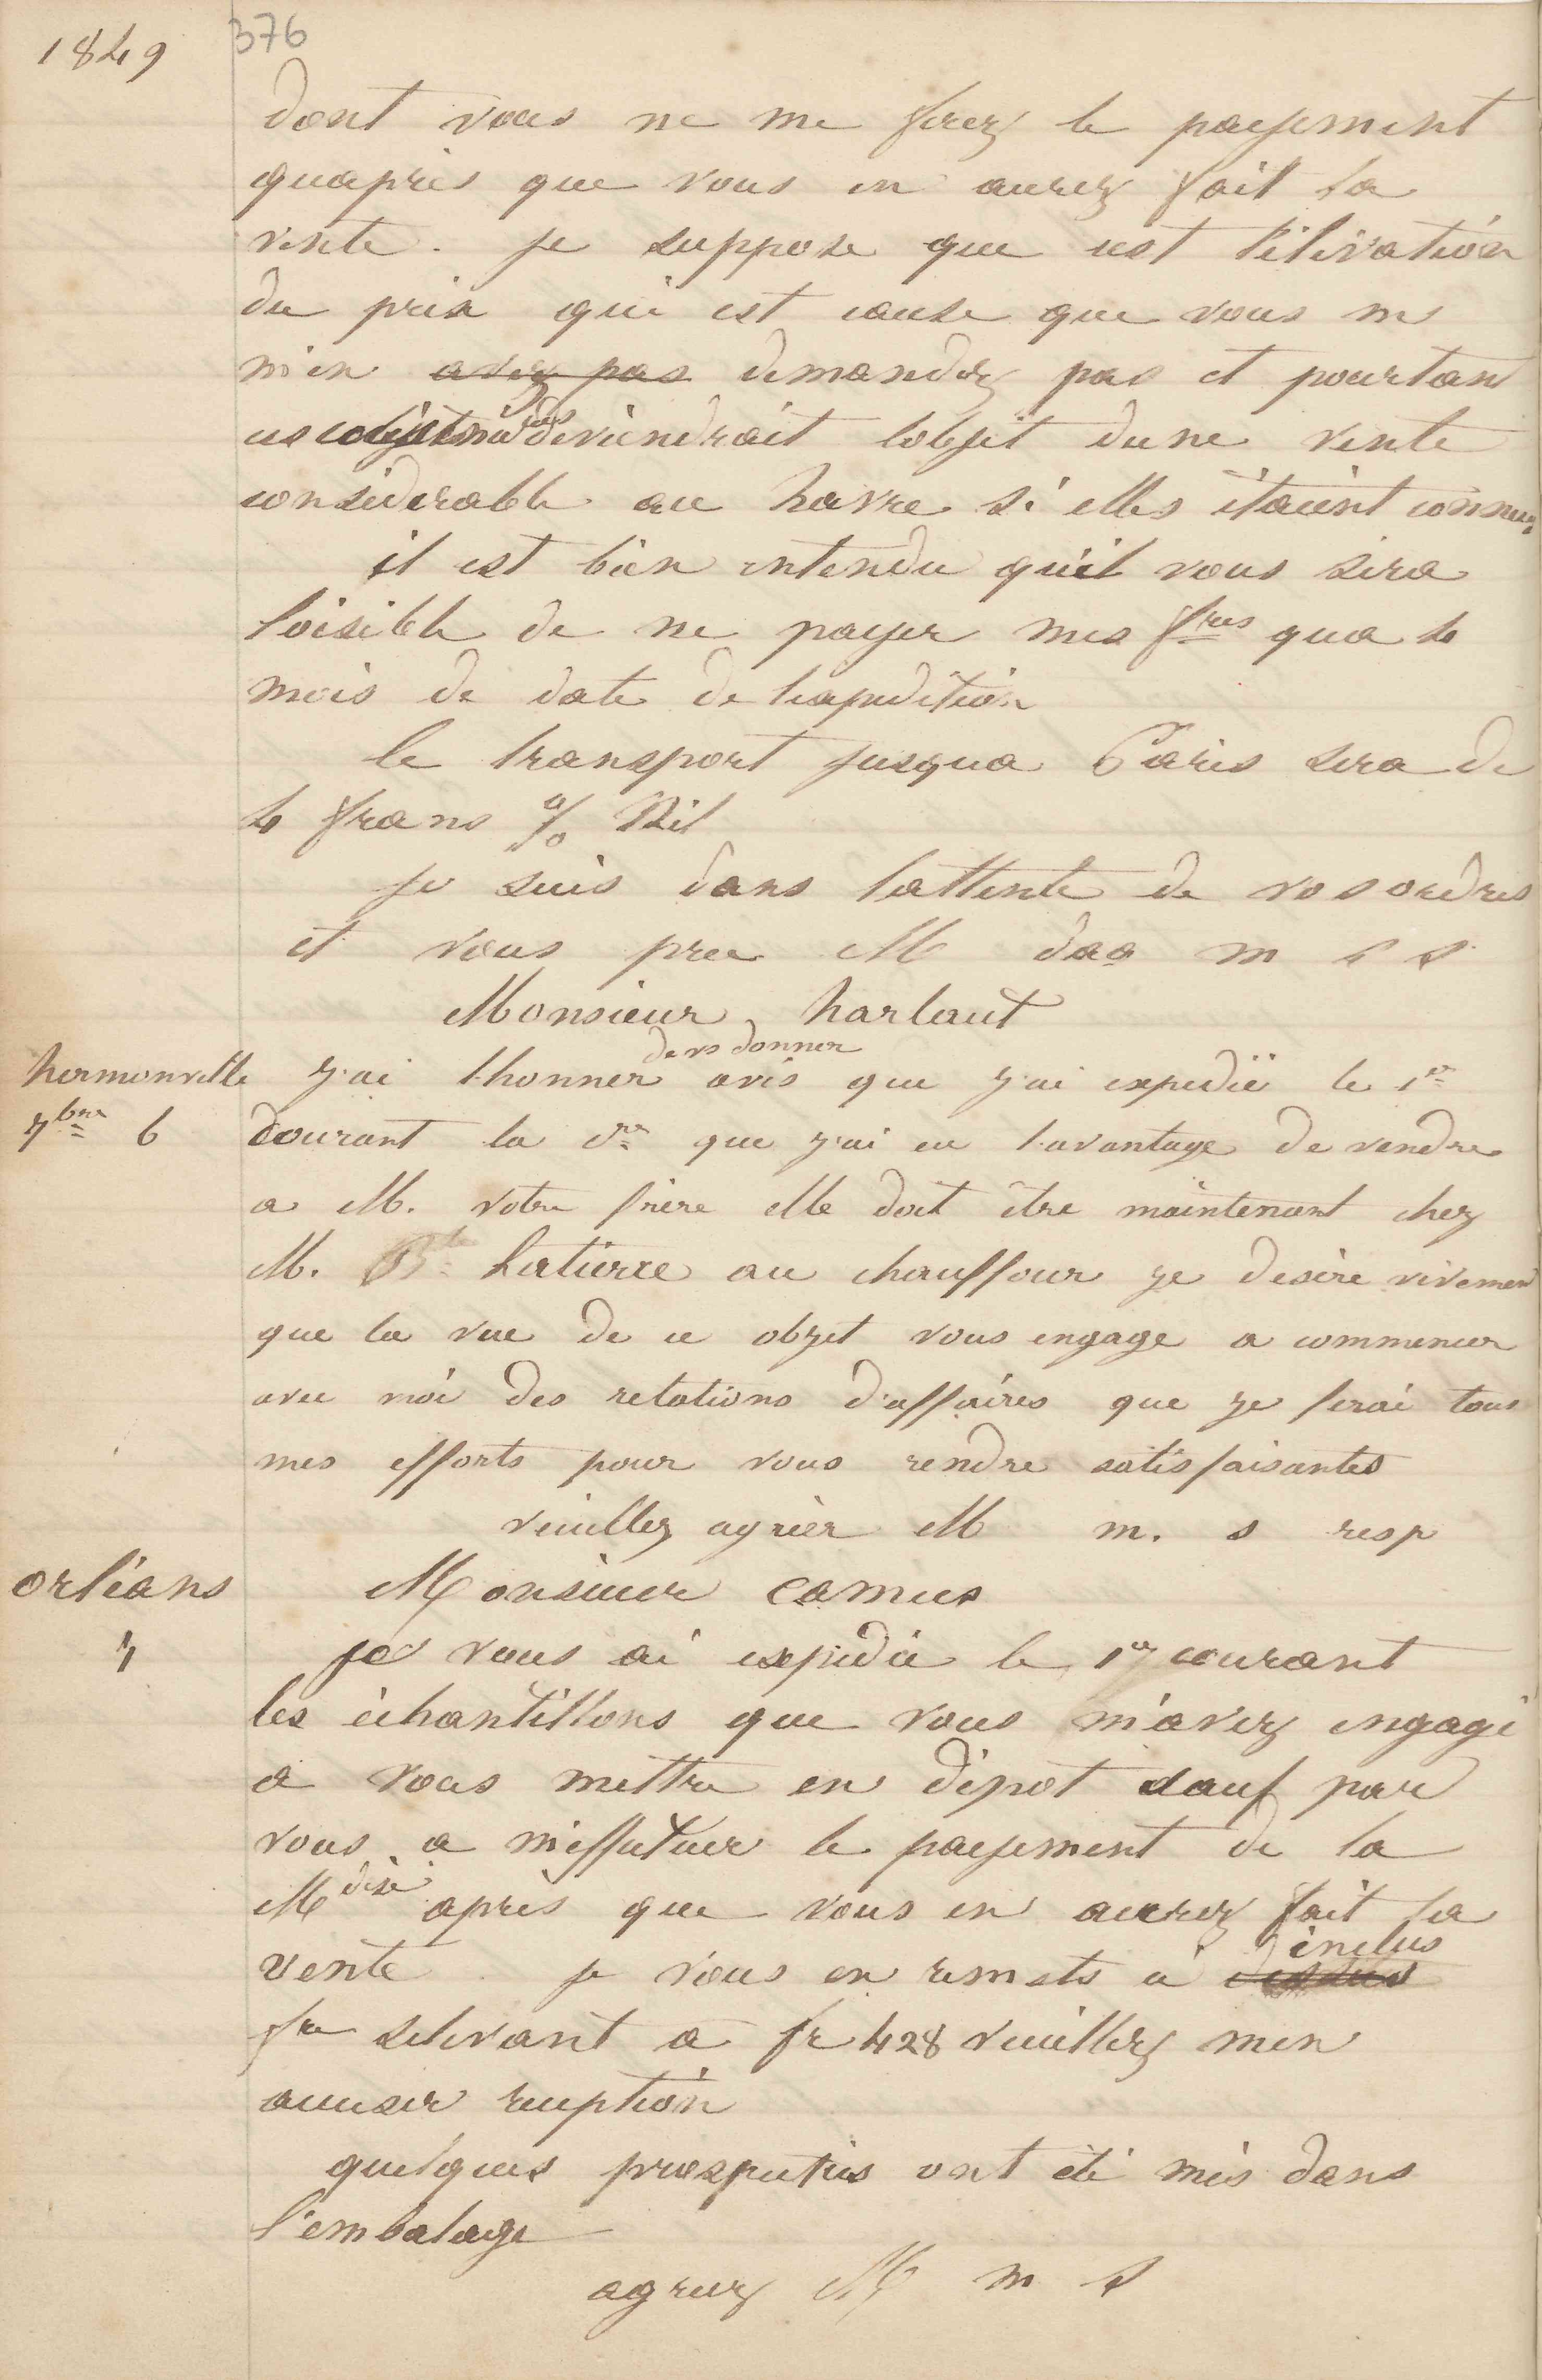 1849
376
dont vous ne me ferez le payement
quapres que vous en aurez fait la
vente . je suppose que cest l'élévation
du prix qui est cause que vous ne
m'en avez pas demandez pas et pourtant
ces deviendrait lobjet dune vente
considerable au havre si elles étaient connues
il est bien entendu qu'il vous sera
loisible de ne payer mes fres qua 4
mois de date de lexpedition
le transport jusqua Paris sera de
4 frans % Kil
je suis dans lattente de vos ordres
et vous prie M daa m s s
Monsieur harlaut
hermonville
7bre 6
de vs donner
j'ai lhonner avis que j'ai expedié le 1er
courant la que j'ai eu l'avantage de vendre
a M. votre frère elle doit être maintenant chez
M. Latierce au chauffour je desire vivement
que la vue de ce objet vous engage a commencer
avec moi des relations d'affaires que je ferai tous
mes efforts pour vous rendre satisfaisantes
veuillez agrèer M m. s resp
orléans
7
Monsieur camus
je vous ai expédié le 1er courant
les échantillons que vous m'avez engagé
a vous mettre en dépot sauf par
vous a m'effectuer le payement de la
Mdise après que vous en aurez fait la
vente . je vous en remets ci inclus
fre selevant a fr 428 veuillez men
accuser reception
quelques prospectus ont été mis dans
l'embalage
agreez M m s